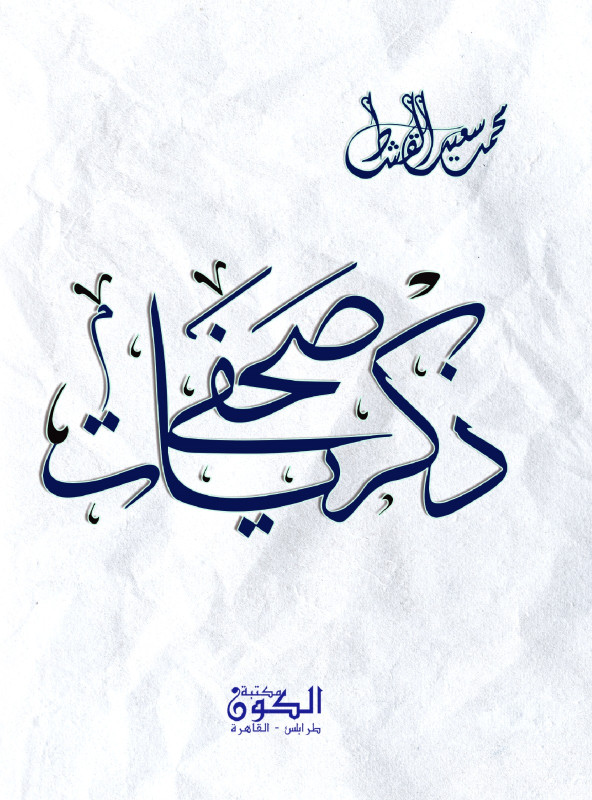 محمد سعيد القشاط
ذكريات صحفي
مكتبة
الكون
طرابلس - القاهرة